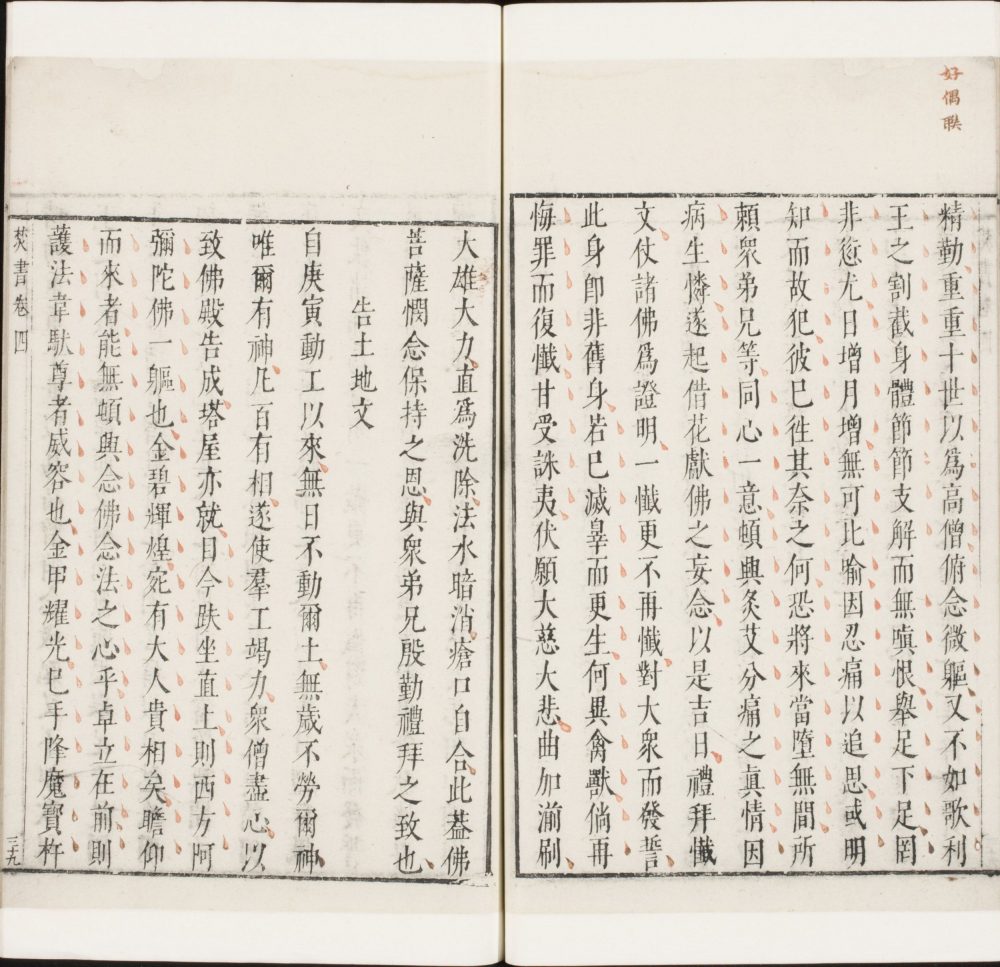 好偶聯
精勤重重十世以爲高僧俯念微軀又不如歌利
王之割截身體節節支解而無嗔恨舉足下足罔
非愆尤日增月增無可比喻因忍痛以追思或明
知而故犯彼巳徃其奈之何恐將來當墮無間所
頼衆弟兄等同心一意頓興灸艾分痛之眞情因
病生憐遂起借花獻佛之妄念以是吉日禮拜懺
文仗諸佛爲證明一懺更不再懺對大衆而發誓
此身卽非舊身若巳滅辠而更生何異禽獸倘再
悔罪而復懺甘受誅夷伏願大慈大悲曲加湔刷
大雄大力直爲洗除法水暗消瘡口自合此葢佛
菩薩憫念保持之恩與衆弟兄殷勤禮拜之致也
告土地文
自庚寅動工以來無日不動爾土無歲不勞爾神
唯爾有神凡百有相遂使羣工竭力衆僧盡心以
致佛殿告成塔屋亦就目今趺坐直上則西方阿
彌陀佛一軀也金碧輝煌宛有大人貴相矣瞻仰
而來者能無頓興念佛念法之心乎卓立在前則
護法韋馱尊者威容也金甲耀光巳手降魔寶杵
焚書卷四
三九